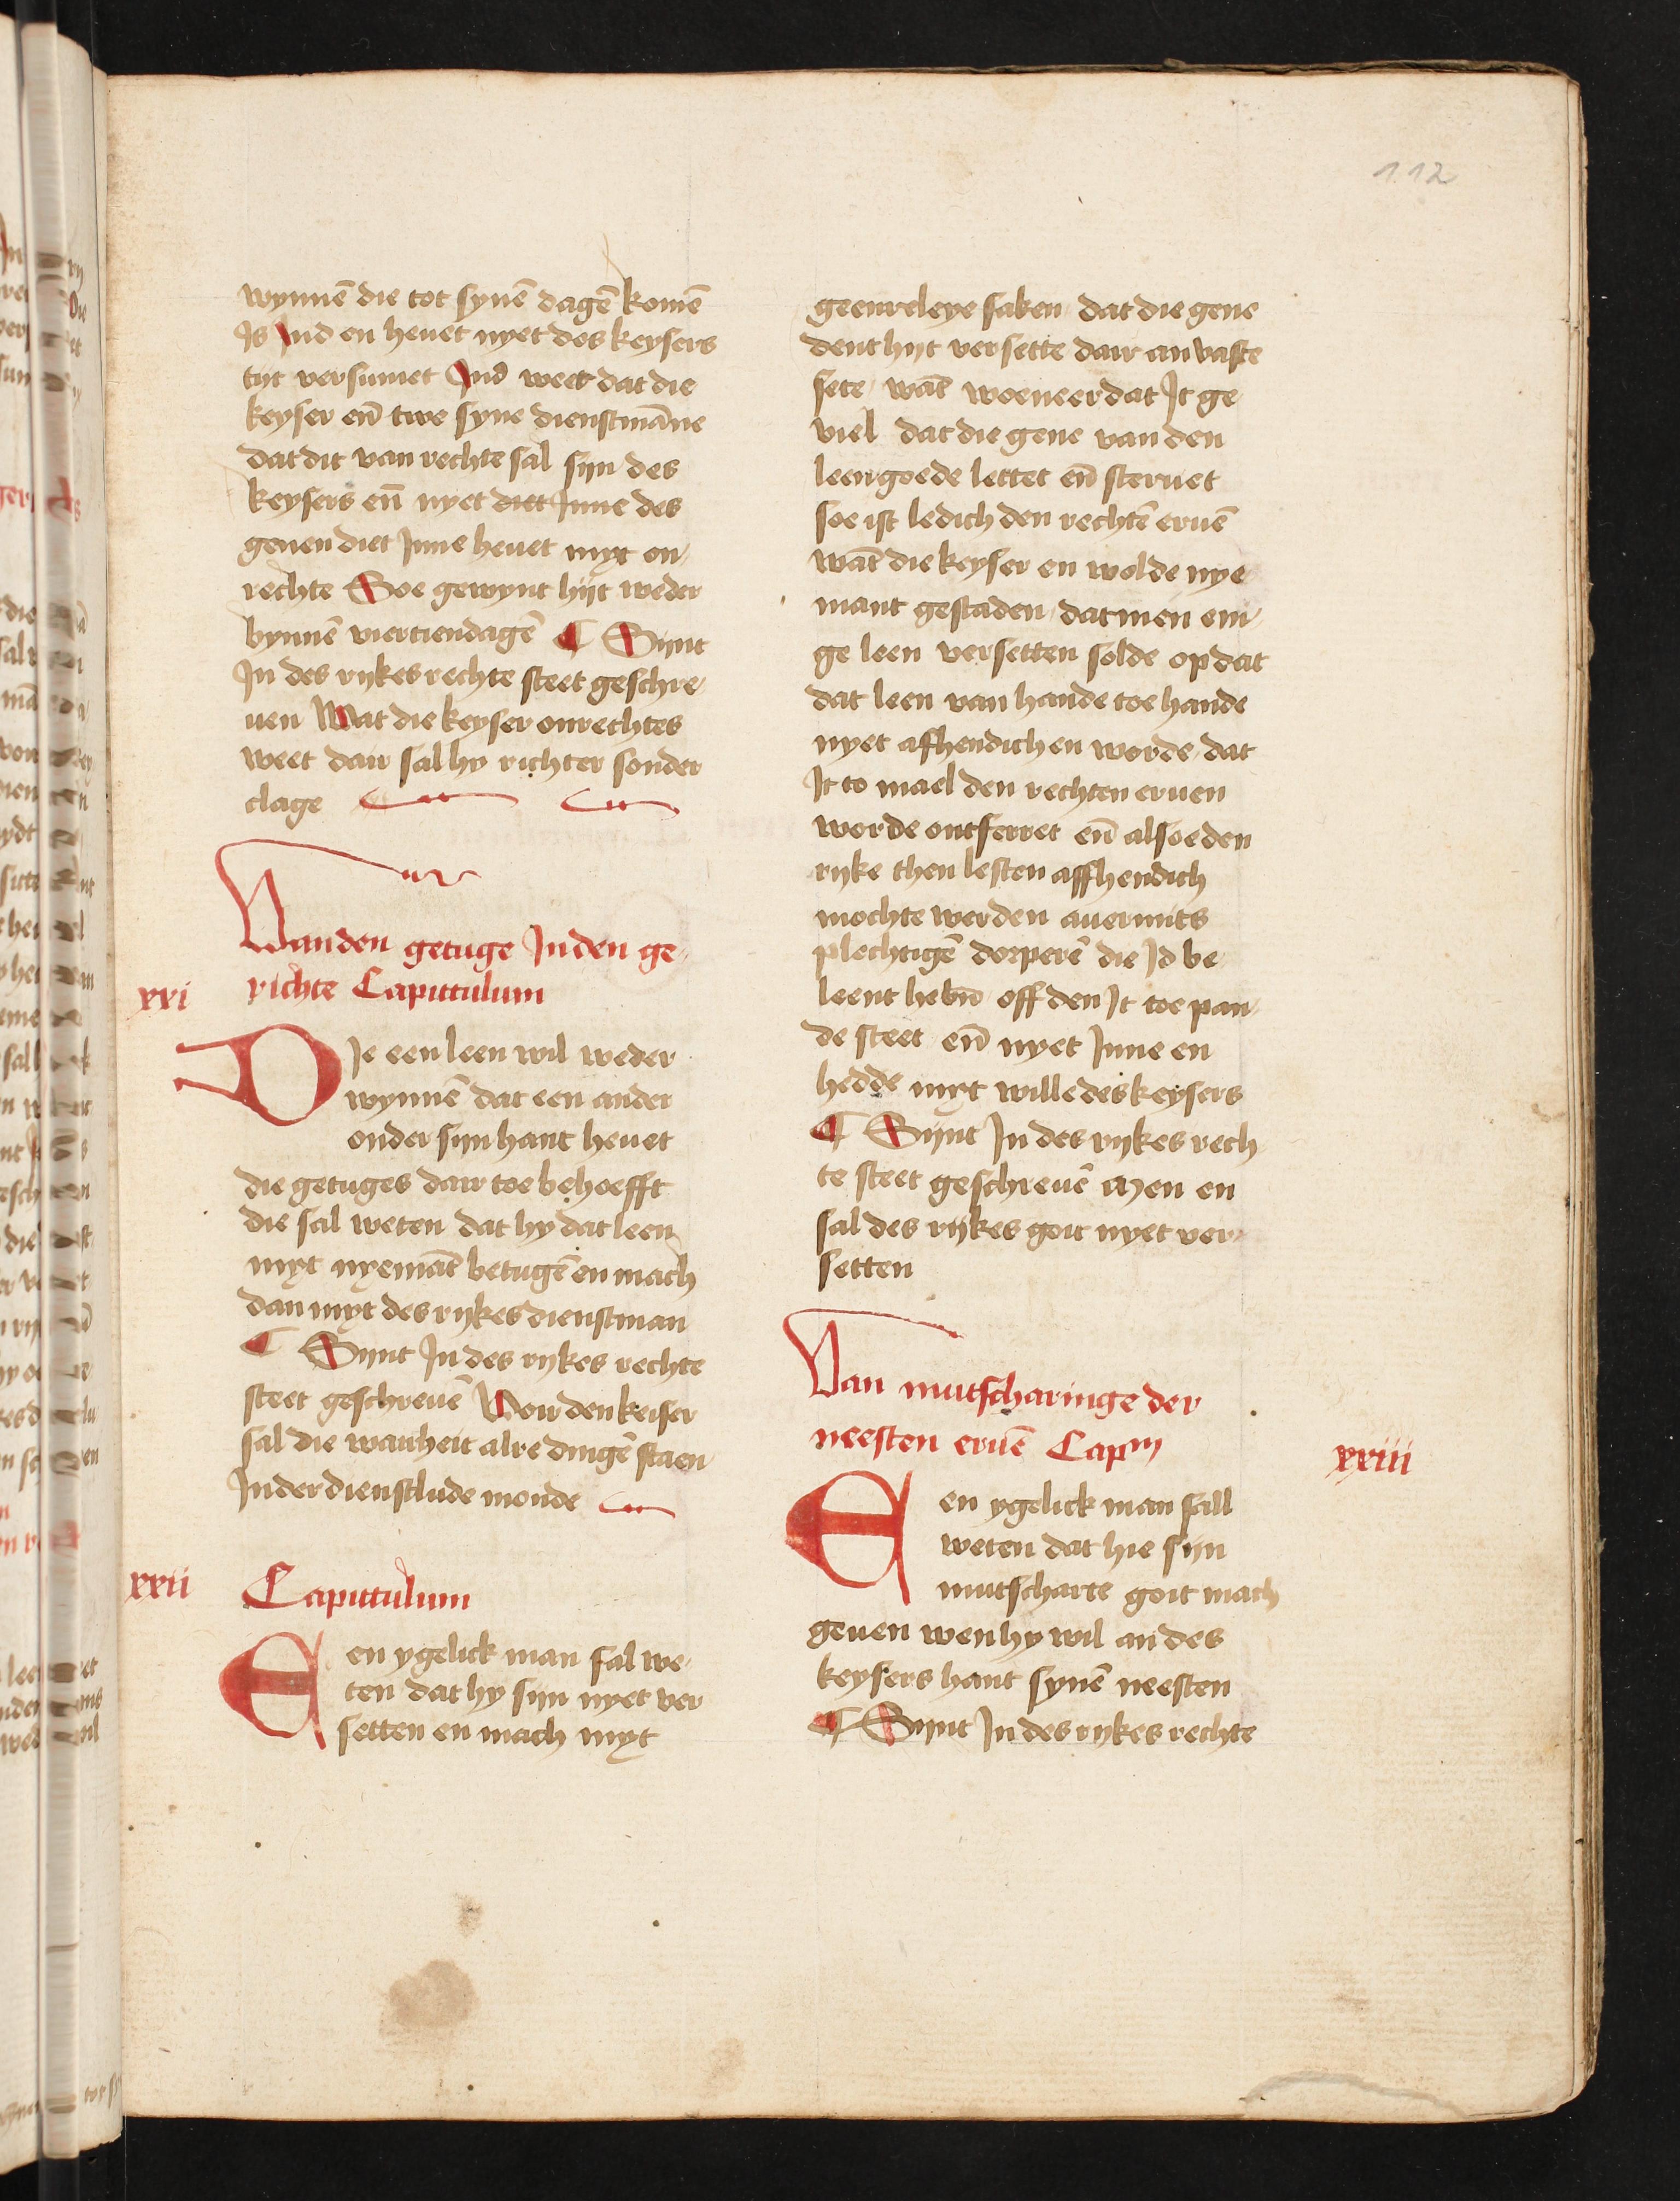 112
wynnē die tot synē dagē komē
Is Ind en heuet nyet des keysers
tijt versumet Ind weet dat die
keyser en̄ twe syne dienstmāne
dat dit van rechte sal sijn des
keysers en̄ nyet diet Inne des
genen diet Inne heuet myt on
rechte Soe gewynt hijt weder
bynnē viertiendagē ¶ Sijnt
In des rijkes rechte steet geschre
uen Wat die keyser onrechtes
weet dair sal hy richter sonder
clage
Vanden getuge Inden ge
xxi richte Capittulum
Die een leen wil weder
wynnē dat een ander
onder sijn hant heuet
die getuges dair toe behoefft
die sal weten dat hy dat leen
myt nyemāt betugē en mach
dan myt des rijkes dienstman
¶ Sijnt In des rijkes rechte
steet geschreuē Voir den keiser
sal die wairheit alre dingē staen
In der dienstlude monde
xxii Capittulum
Een ygelick man sal we
ten dat hy sijn nyet ver
setten en mach myt
geenreleye saken dat die gene
dent hijt versette dair an vaste
sete wāt woeneer dat It ge
viel dat die gene van den
leengoede lettet en̄ steruet
soe ist ledich den rechtē eruē
wāt die keyser en wolde nye
mant gestaden dat men eni
ge leen versetten solde op dat
dat leen van hande toe hande
nyet afhendich en worde dat
It to mael den rechten eruen
worde ontferret en̄ alsoe den
rijke then lesten affhendich
mochte werden auermits
plechtigē dorperē die Id be
leent hebn̄ off den It toe pan
de steet en̄ nyet Inne en
hedde myt wille des keysers
¶ Sijnt In des rijkes rech
te steet geschreuē Men en
sal des rijkes goit nyet ver
setten
Van mutscharinge der
neesten eruē Capm xxiii
Een ygelick man sall
weten dat hie sijn
mutscharte goit mach
geuen wen hy wil an des
keysers hant synē neesten
¶ Sijnt In des rijkes rechte